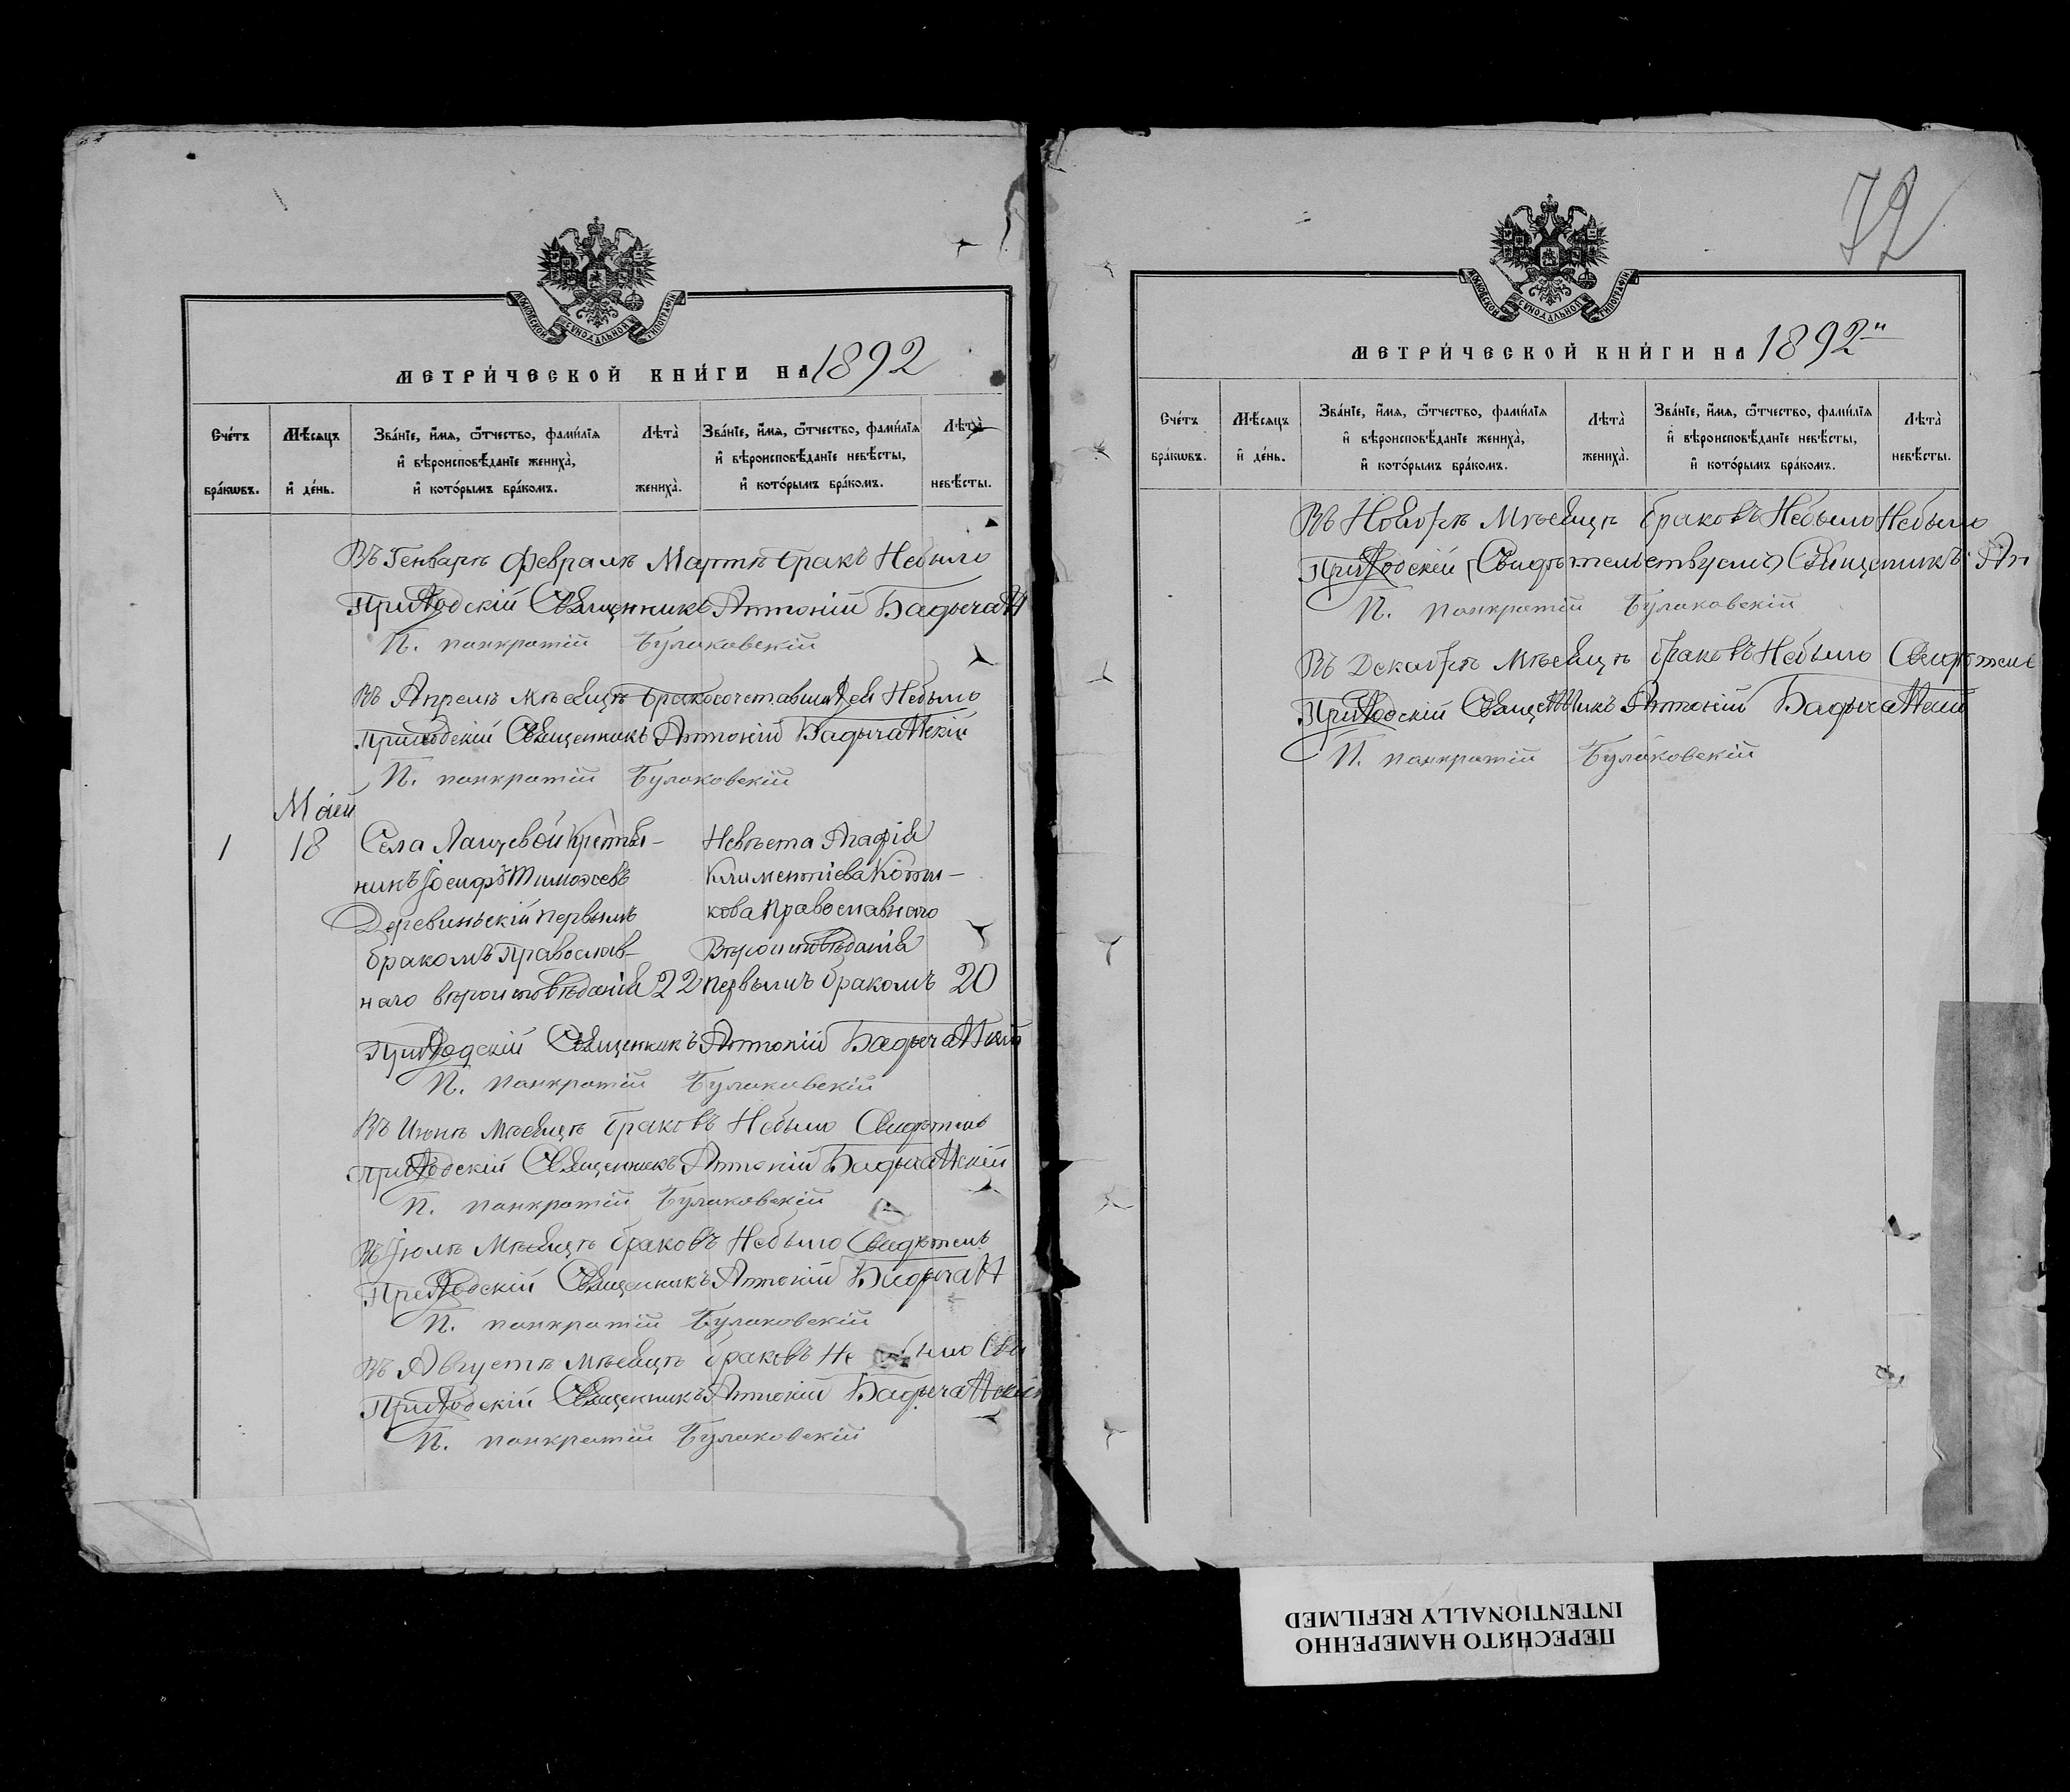 МОСКОВСКОЙ СѴНОДАЛЬНОЙ ТИПОГРАФІИ
МЕТРИ́ЧЕСКОЙ КНИ́ГИ НА 1892
Сче́тъ бра́кѡвъ.
Мѣ́сяцъ и҆ де́нь.
Зва́нїе, и҆́мѧ, ѻ҆́тчество, фами́лїѧ
и҆ вѣроисповѣ́данїе жениха̀,
и҆ кото́рымъ бра́комъ.
Лѣта̀ жениха̀.
Зва́нїе, и҆́мѧ, ѻ҆́тчество, фами́лїѧ
и҆ вѣроисповѣ́данїе невѣ́сты,
и҆ кото́рымъ бра́комъ.
Лѣта̀ невѣ́сты.
Въ Генварѣ Февралѣ Мартѣ бракъ Небыло
Приходскій Священникъ Антоній
П. панкратій Булаковскій
Въ Апрелѣ Мѣсяцѣ бракосочетавшихся Небыло
Приходскій Священникъ Антоній
П. панкратій Булаковскій
Маій
1 18 Села Лащевой Крестья-
никъ Іосифъ Тимофеевъ
Деревинскій первымъ
бракомъ Православ-
наго вѣроисповѣданія 22
Невѣста Агафія
Климентіева
кова Православнаго
Вѣроисповѣданія
первымъ бракомъ 20
Приходскій Священникъ Антоній
П. Панкратій Булаковскій
Въ Июнѣ Мѣсяцѣ браковъ Небыло Свидѣтель
Приходскій Священникъ Антоній
П. панкратій Булаковскій
Въ Іюлѣ Мѣсяцѣ браковъ Небыло Свидѣтель
Приходскій Священникъ Антоній
П. панкратій Булаковскій
Въ Августѣ Мѣсяцѣ браковъ Не было
Приходскій Священникъ Антоній
П. панкратій Булаковскій
72
МОСКОВСКОЙ СѴНОДАЛЬНОЙ ТИПОГРАФІИ
МЕТРИ́ЧЕСКОЙ КНИ́ГИ НА 1892
Сче́тъ бра́кѡвъ.
Мѣ́сяцъ и҆ де́нь.
Зва́нїе, и҆́мѧ, ѻ҆́тчество, фами́лїѧ
и҆ вѣроисповѣ́данїе жениха̀,
и҆ кото́рымъ бра́комъ.
Лѣта̀ жениха̀.
Зва́нїе, и҆́мѧ, ѻ҆́тчество, фами́лїѧ
и҆ вѣроисповѣ́данїе невѣ́сты,
и҆ кото́рымъ бра́комъ.
Лѣта̀ невѣ́сты.
Въ Ноябрѣ Мѣсяцѣ браковъ Небыло Небыло
Приходскій Священникъ Ан
П. панкратій Булаковскій
Въ Декабрѣ Мѣсяцѣ браковъ Небыло Свидѣтель
Приходскій Священникъ Антоній
П. панкратій Булаковскій
ПЕРЕСНЯТО НАМЕРЕННО
INTENTIONALLY REFILMED